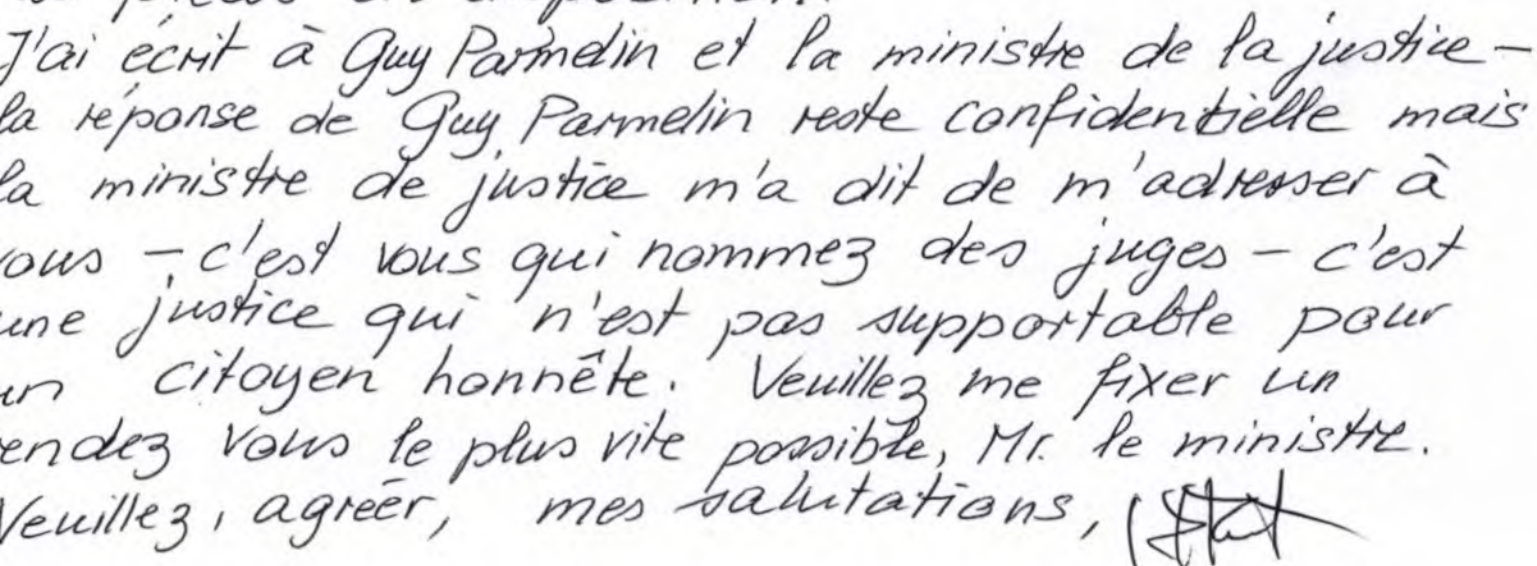 J'ai écrit à Guy Parmelin et la ministre de la justice –
la réponse de Guy Parmelin reste confidentielle mais
la ministre de justice m'a dit de m'adresser à
vous – c'est vous qui nommez des juges – c'est
une justice qui n'est pas supportable pour
un citoyen honnête. Veuillez me fixer un
rendez vous le plus vite possible, Mr. le ministre.
Veuillez, agréer, mes salutations,